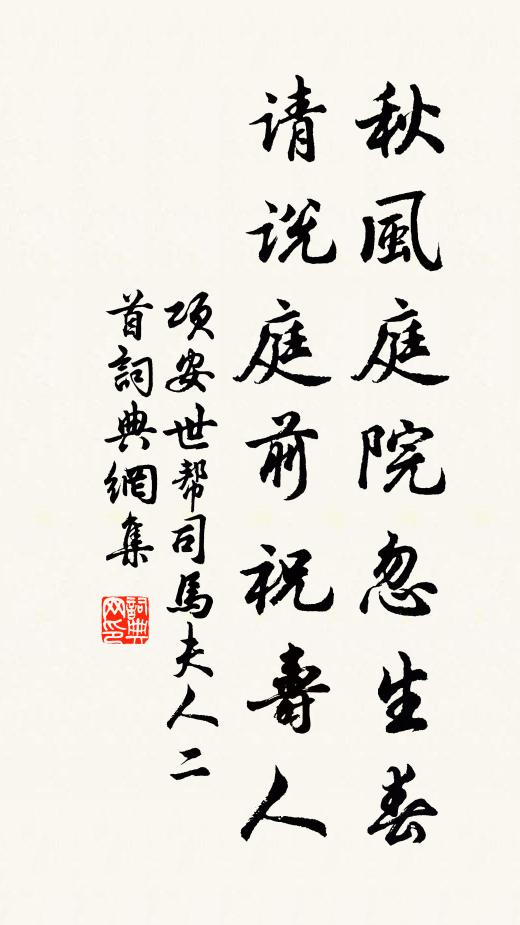 秋風庭院忽生春
请说庭前祝壽人
项安世帮司馬夫人二
首詞典網集
詞典
网印